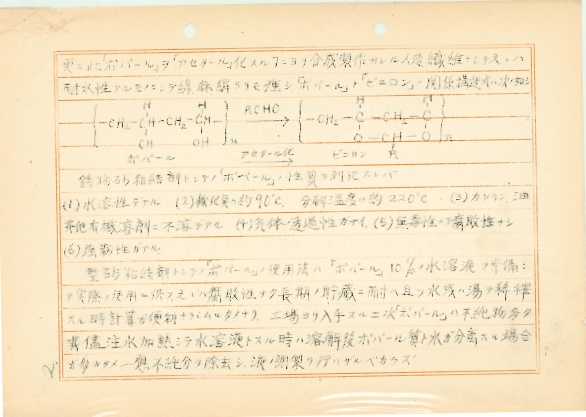 更ニ此「ポバール」ヲ「アセタール」化スルニヨリ合成製作サレル人造纖維
耐水性アルモノニシテ綿麻絹ヨリモ強シ「ポバール」ト「ビニロン」ノ関係構造式ハ次ノ如シ
H H H
-CH₂-C-CH₂-CH- n RCHO -CH₂-C-CH₂-C- n
OH OH O-CH-O
ポバール アセタール化 ビニロン R
鋳物砂粘結剤トシテノ「ポバール」ノ性質ヲ列記スレバ
(1)水溶性デアル (2)軟化点ハ約90℃、分解温度ハ約220℃ (3)ガソリン、油
其他有機溶剤ニ不溶デアル (4)気体ノ透過性ガナイ、(5)無毒性ニテ腐敗性ナシ
(6)強靱性ガアル、
型砂粘結剤トシテノ「ポバール」ノ使用法ハ「ポバール」10%ノ水溶液ヲ常備シ
実際ノ使用ニ供フ 腐敗性ナク長期ノ貯蔵ニ耐ヘ且ツ水或ハ湯デ稀釋
スル時計算ガ便利ナラシムルタメナリ、工場ヨリ入手スル二次「ポバール」ハ不純物多ク
其儘注水加熱シテ水溶液トスル時ハ溶解後ポバール質ト水ガ分離スル場合
ガ多キタメ一應不純分ヲ除去シ、液ノ調製ヲ行ハザルベカラズ
2.